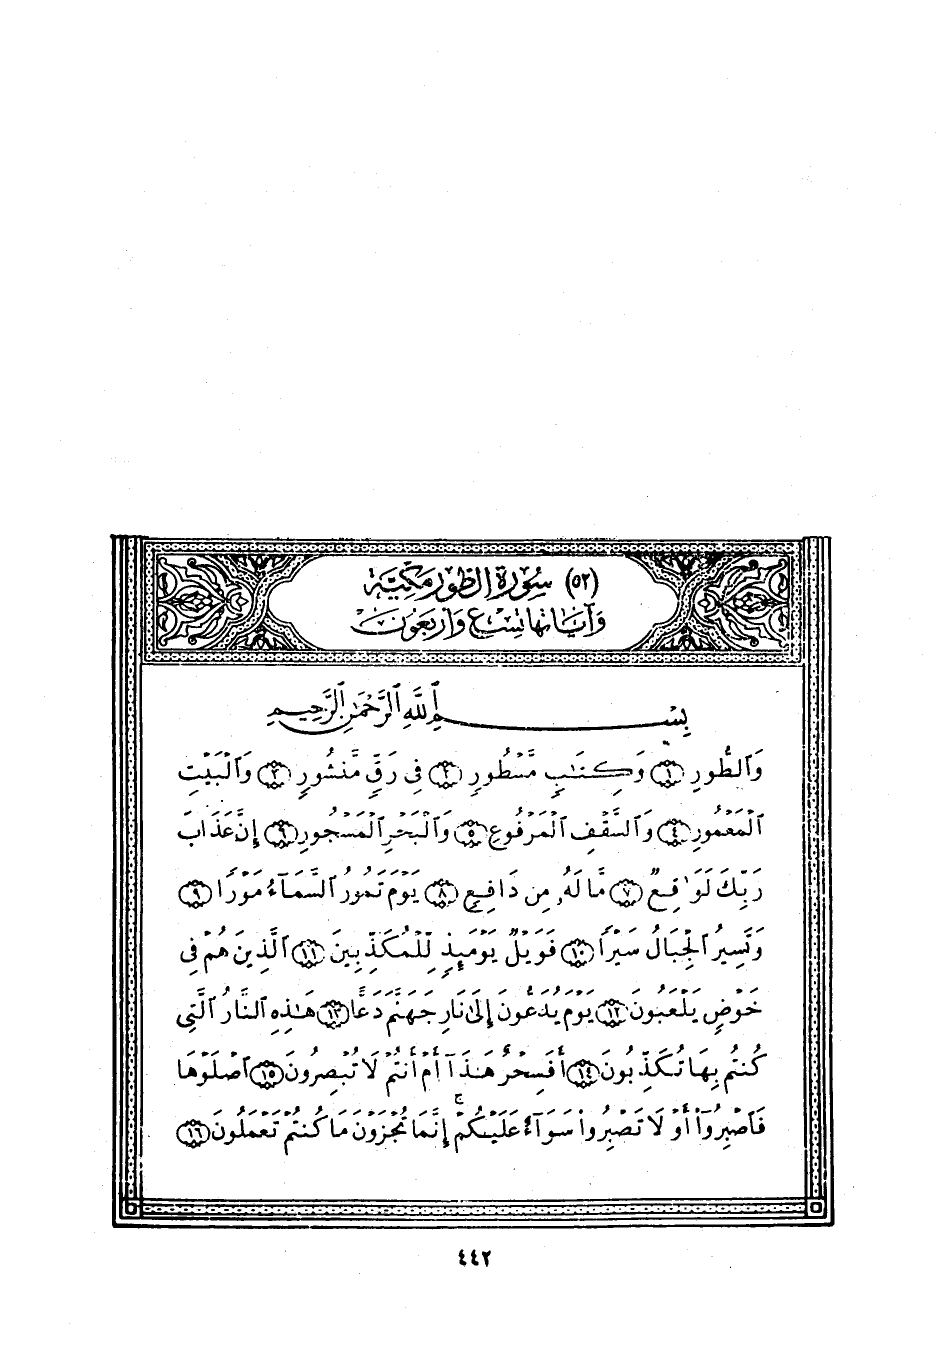 (٥٢) سُورَةِ الطُّورِ مَكِّيَّة
وَآيَاتُهَا تِسْعٌ وَأَرْبَعُونَ
بِسْمِ ٱللَّهِ ٱلرَّحْمَٰنِ ٱلرَّحِيمِ
وَٱلطُّورِ ١ وَكِتَٰبٍ مَّسْطُورٍ ٢ فِى رَقٍّ مَّنشُورٍ ٣ وَٱلْبَيْتِ
ٱلْمَعْمُورِ ٤ وَٱلسَّقْفِ ٱلْمَرْفُوعِ ٥ وَٱلْبَحْرِ ٱلْمَسْجُورِ ٦ إِنَّ عَذَابَ
رَبِّكَ لَوَٰقِعٌ ٧ مَّا لَهُۥ مِن دَافِعٍ ٨ يَوْمَ تَمُورُ ٱلسَّمَآءُ مَوْرًا ٩
وَتَسِيرُ ٱلْجِبَالُ سَيْرًا ١٠ فَوَيْلٌ يَوْمَئِذٍ لِّلْمُكَذِّبِينَ ١١ ٱلَّذِينَ هُمْ فِى
خَوْضٍ يَلْعَبُونَ ١٢ يَوْمَ يُدَعُّونَ إِلَىٰ نَارِ جَهَنَّمَ دَعًّا ١٣ هَٰذِهِ ٱلنَّارُ ٱلَّتِى
كُنتُم بِهَا تُكَذِّبُونَ ١٤ أَفَسِحْرٌ هَٰذَآ أَمْ أَنتُمْ لَا تُبْصِرُونَ ١٥ ٱصْلَوْهَا
فَٱصْبِرُوٓا۟ أَوْ لَا تَصْبِرُوا۟ سَوَآءٌ عَلَيْكُمْ ۖ إِنَّمَا تُجْزَوْنَ مَا كُنتُمْ تَعْمَلُونَ ١٦
٤٤٢